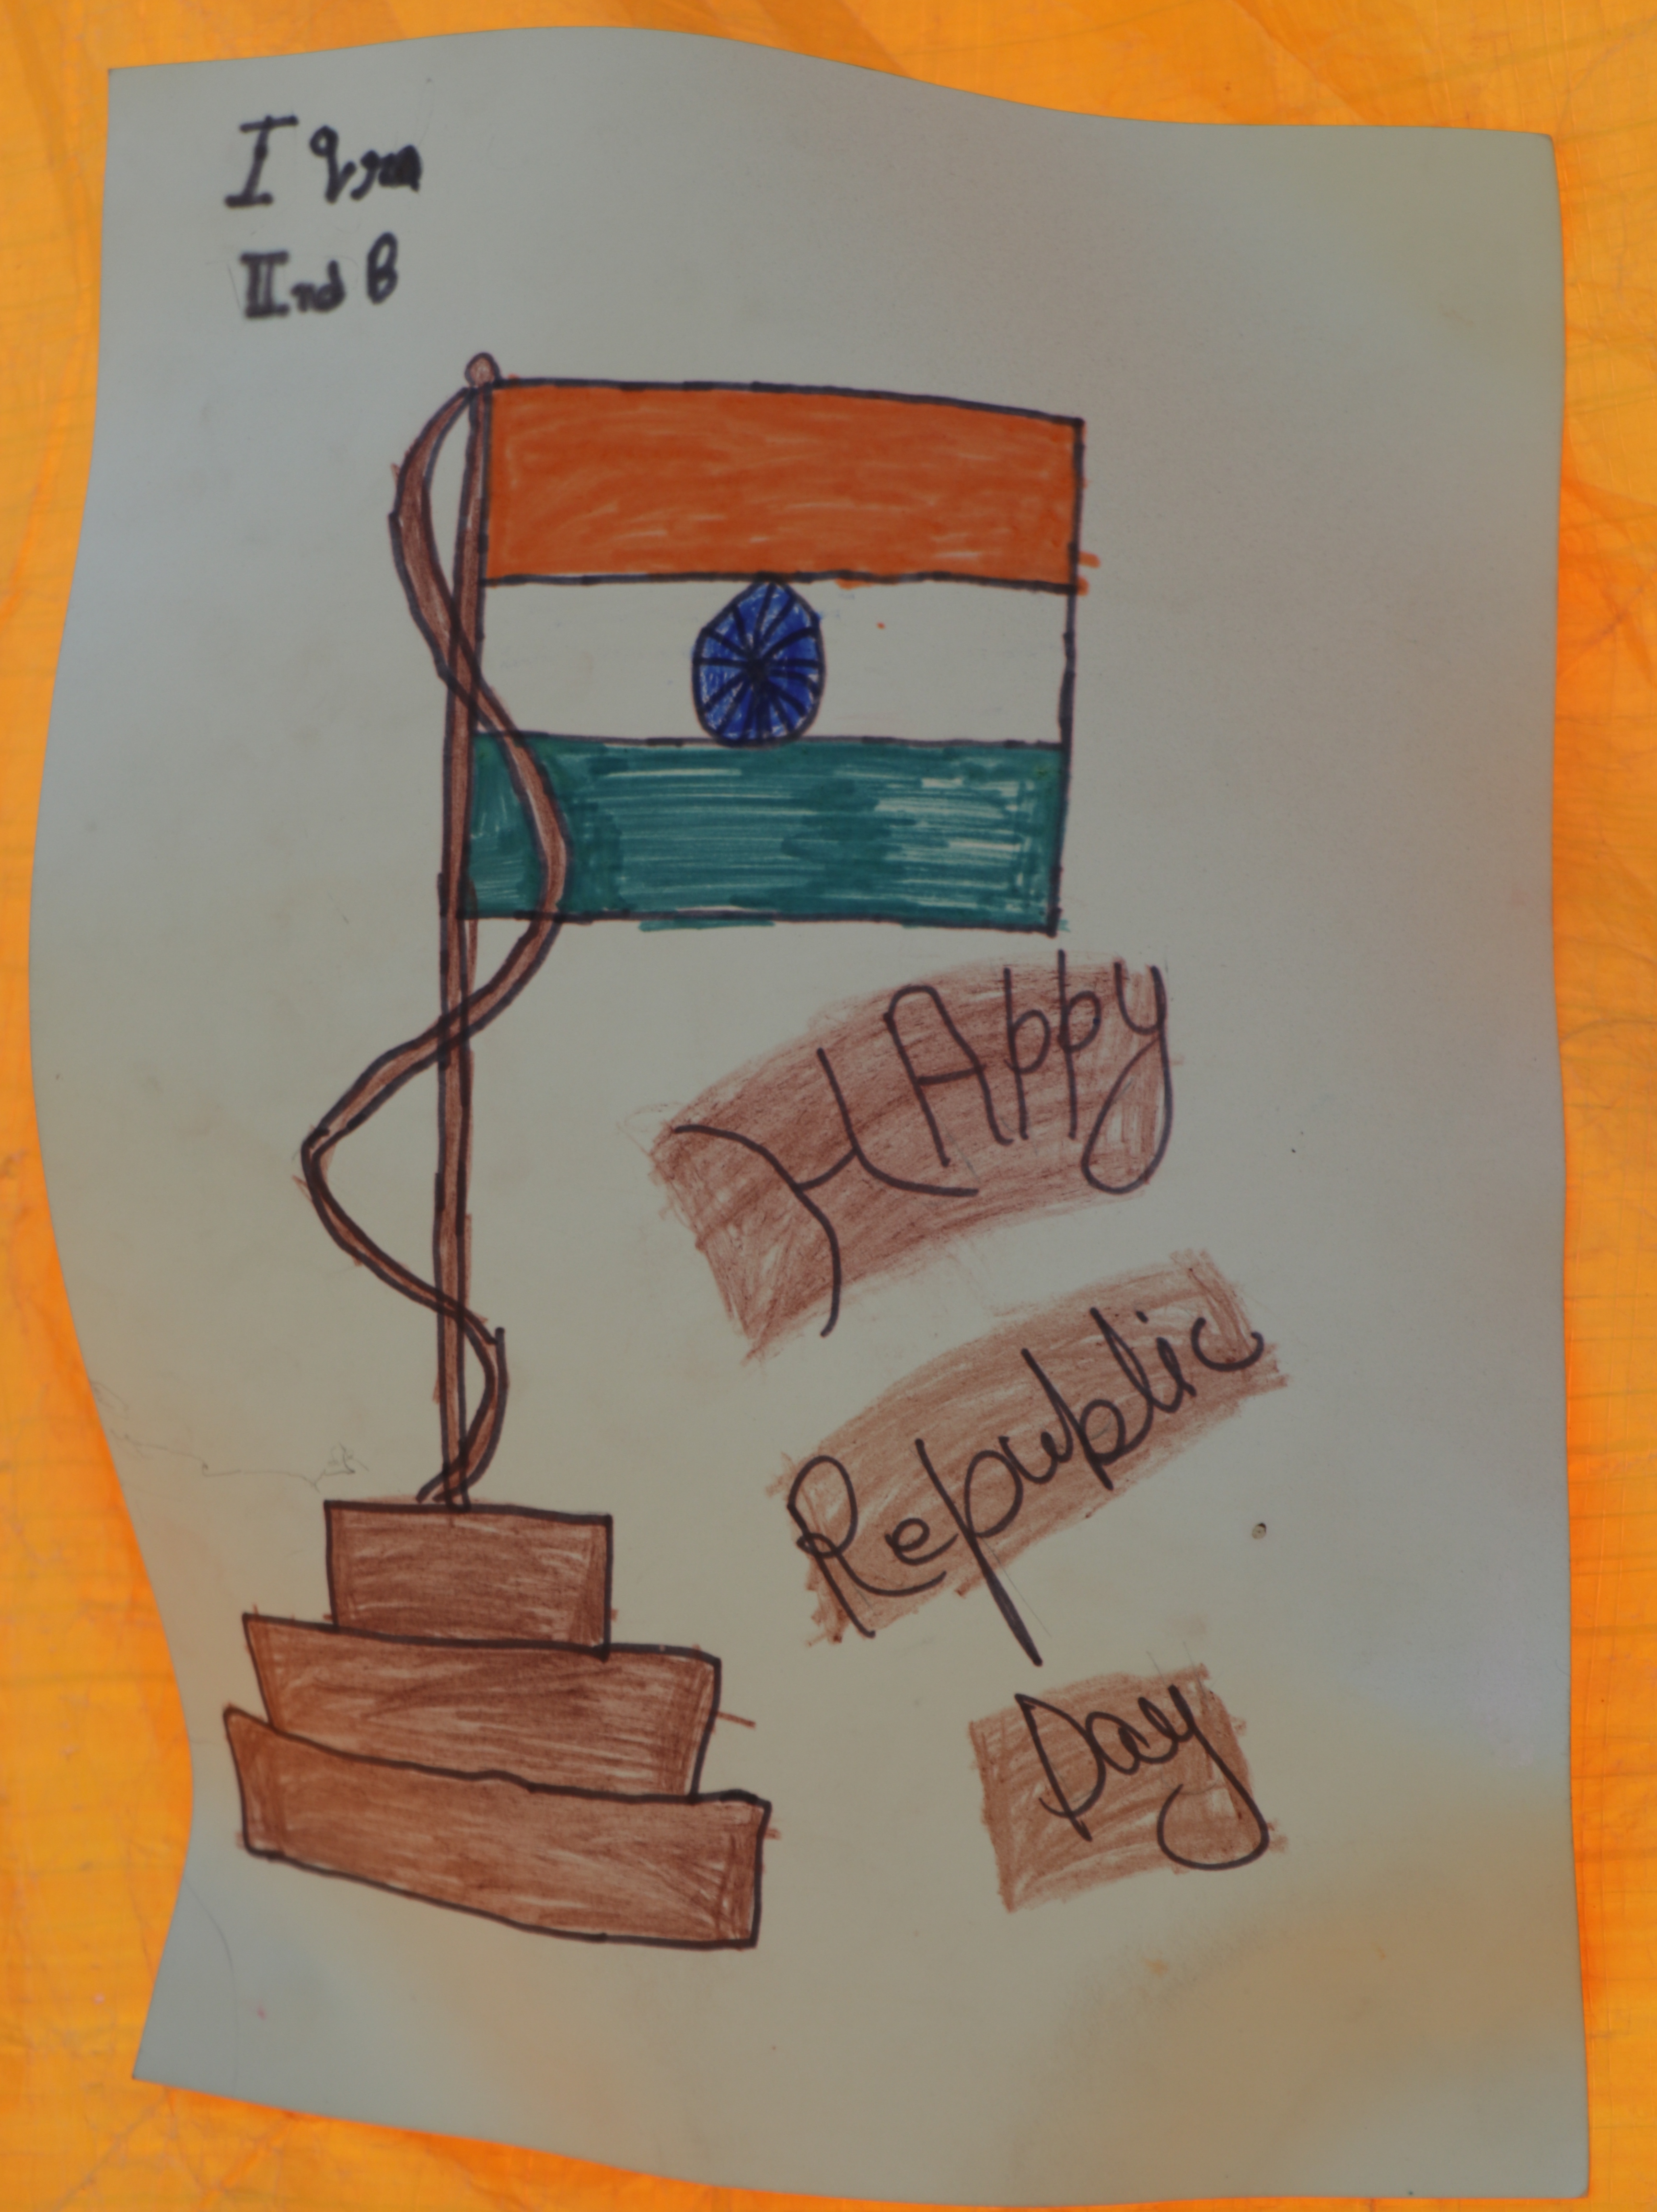 IInd B
HAppy
Republic
Day